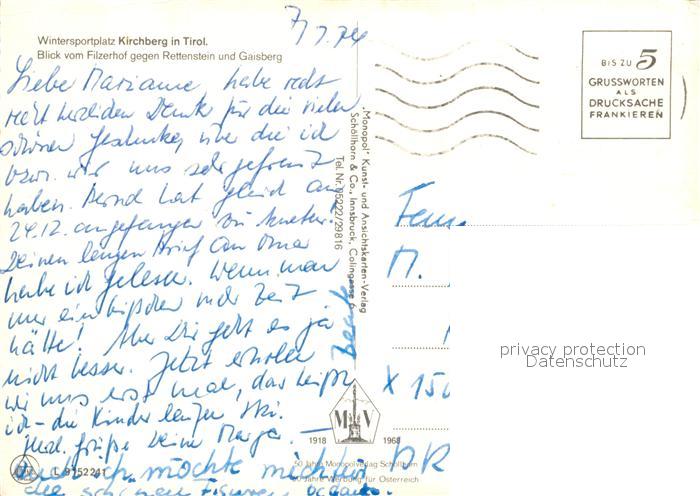 7/1.74
Wintersportplatz Kirchberg in Tirol.
Blick vom Filzerhof gegen Rettenstein und Gaisberg
Liebe Marianne, habe recht
recht herzlichen Dank für die vielen
schönen Geschenke, über die ich
bzw. wir uns sehr gefreut
haben. Bernd hat gleich am
24.12. angefangen zu kneten!
Deinen langen Brief an Oma
habe ich gelesen. Wenn man
nur ein bißchen mehr Zeit
hätte! Aber Dir geht es ja
nicht besser. Jetzt erholen
wir uns erst mal, das heißt
ich - die Kinder laufen Ski.
Herzl. Grüße Deine
Auch ich möchte mich für
die schönen bedanken.
"Monopol" Kunst- und Ansichtskarten-Verlag
Schöllhorn & Co., Innsbruck, Colingasse
Tel. Nr. 05222/29816
BIS ZU 5
GRUSSWORTEN
ALS
DRUCKSACHE
FRANKIEREN
M.
X 150
DR
privacy protection
Datenschutz
M V
1918 1968
50 Jahre Monopolverlag Schöllhorn
50 Jahre Werbung für Österreich
L 9752241